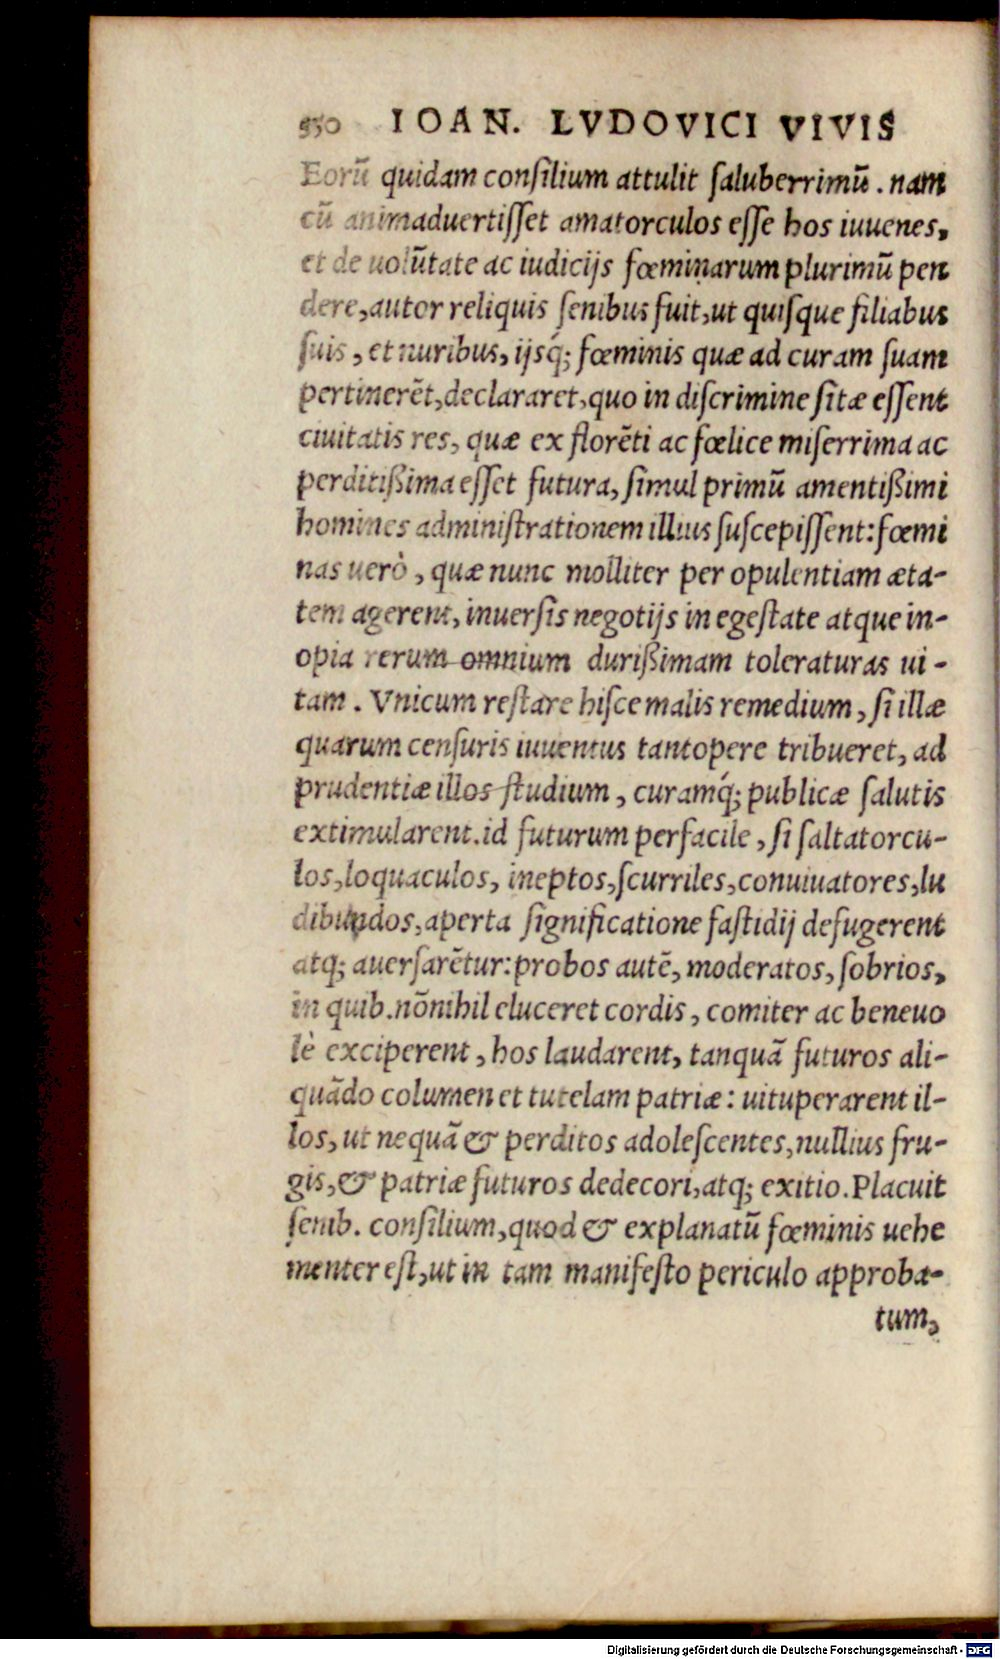 550 IOAN. LVDOVICI VIVIS
Eorū quidam consilium attulit saluberrimū. nam
cū animaduertisset amatorculos esse hos iuuenes,
et de uolūtate ac iudicijs fœminarum plurimū pen
dere, autor reliquis senibus fuit, ut quisque filiabus
suis, et nuribus, ijsq́; fœminis quæ ad curam suam
pertinerēt, declararet, quo in discrimine sitæ essent
ciuitatis res, quæ ex florēti ac fœlice miserrima ac
perditißima esset futura, simul primū amentißimi
homines administrationem illius suscepissent: fœmi
nas uerò, quæ nunc molliter per opulentiam æta-
tem agerent, inuersis negotijs in egestate atque in-
opia rerum omnium durißimam toleraturas ui-
tam. Vnicum restare hisce malis remedium, si illæ
quarum censuris iuuentus tantopere tribueret, ad
prudentiæ illos studium, curamq́; publicæ salutis
extimularent. id futurum perfacile, si saltatorcu-
los, loquaculos, ineptos, scurriles, conuiuatores, lu
dibundos, aperta significatione fastidij defugerent
atq; auersarētur: probos autē, moderatos, sobrios,
in quib. nōnihil eluceret cordis, comiter ac beneuo
lè exciperent, hos laudarent, tanquā futuros ali-
quādo columen et tutelam patriæ: uituperarent il-
los, ut nequā & perditos adolescentes, nullius fru-
gis, & patriæ futuros dedecori, atq; exitio. Placuit
senib. consilium, quod & explanatū fœminis uehe
menter est, ut in tam manifesto periculo approba-
tum,
Digitalisierung gefördert durch die Deutsche Forschungsgemeinschaft - DFG